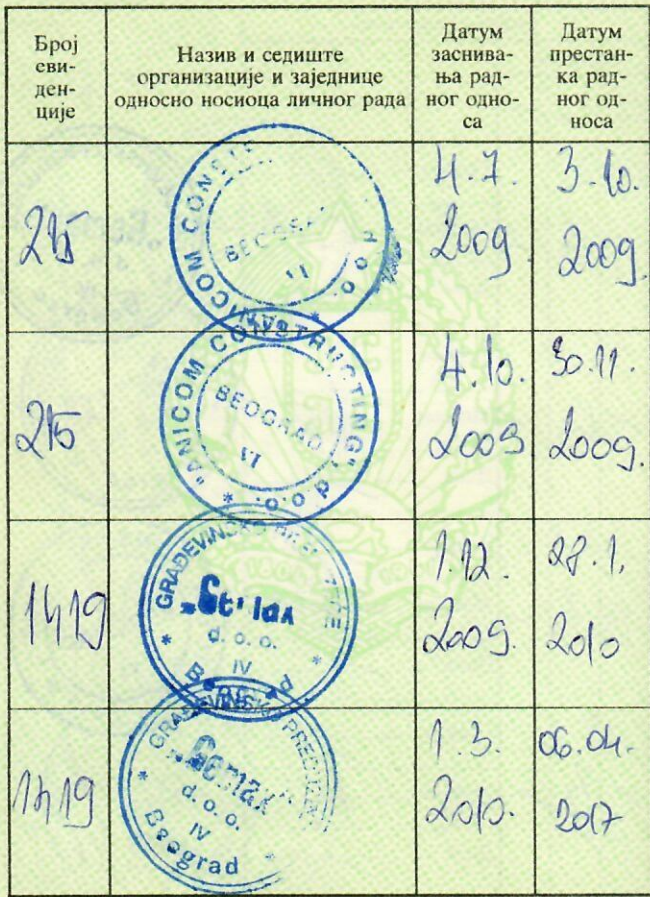 Број
еви-
ден-
ције
Назив и седиште
организације и заједнице
односно носиоца личног рада
Датум
заснива-
ња рад-
ног одно-
са
Датум
престан-
ка рад-
ног од-
носа
215
"ANICOM d.o.o.
BEOGRAD
VI
4.7.
2009.
3.10.
2009.
215
"ANICOM CONSTRUCTING", d.o.o.
BEOGRAD
VI
4.10.
2009
30.11.
2009.
1419
GRAĐEVINSKO
d. o. o.
IV
Beograd
1.12.
2009.
28.1.
2010
1419
GRAĐEVINSKO
"Gemax"
d. o. o.
IV
Beograd
1.3.
2010.
06.04.
2017